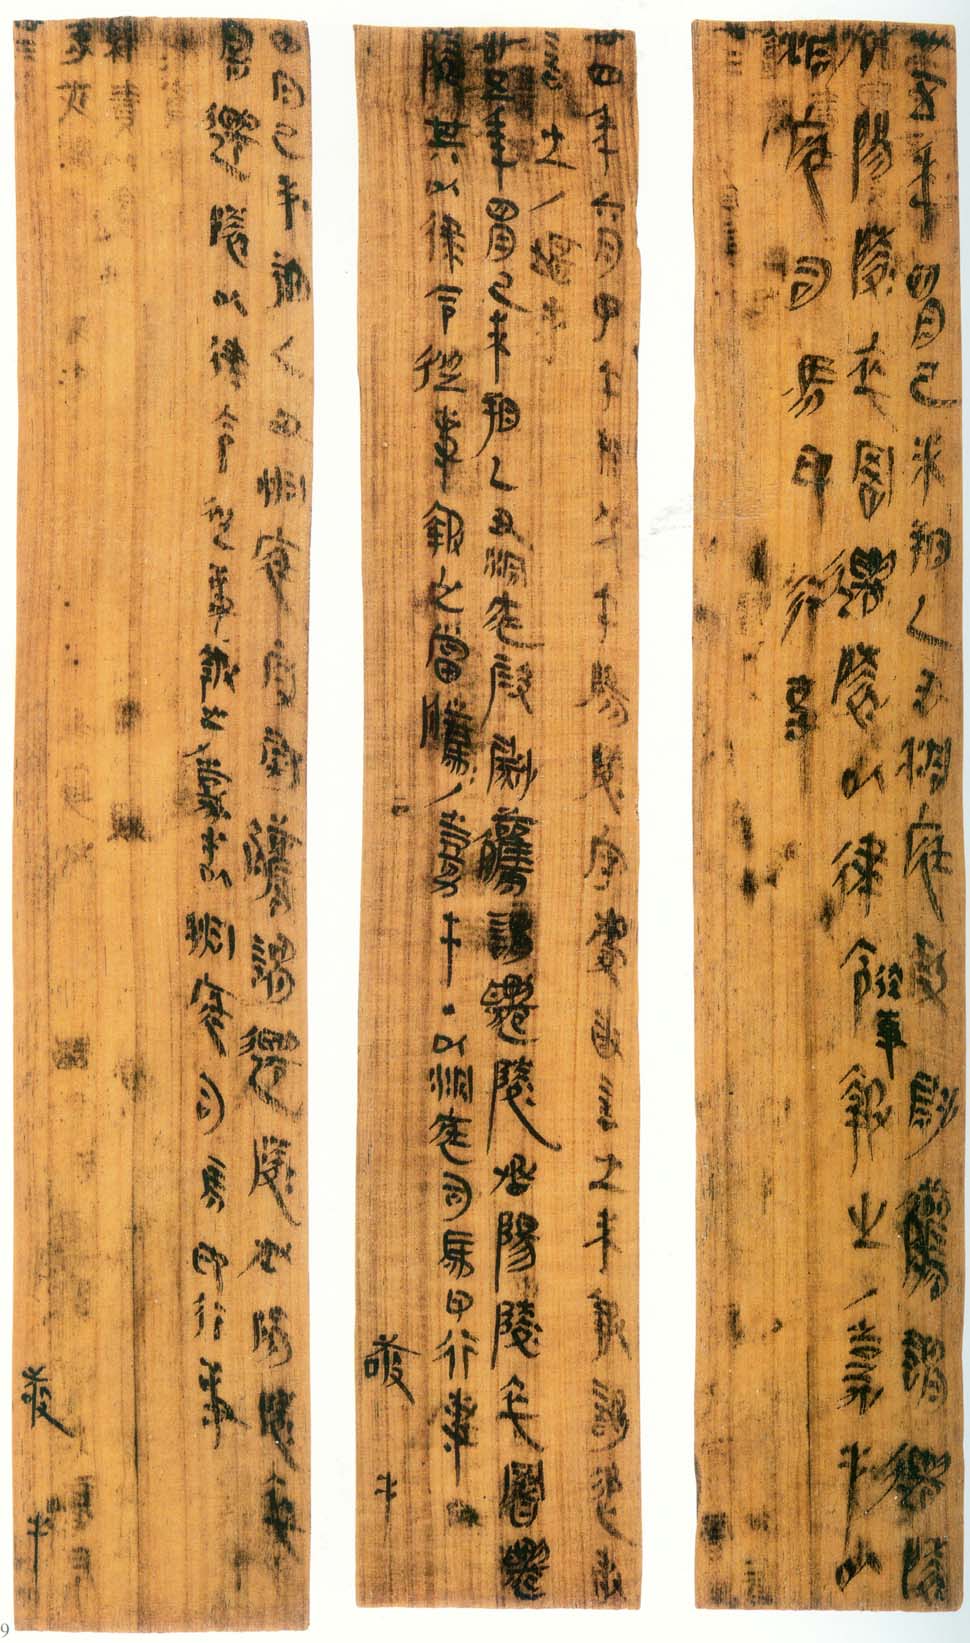 卅五年四月己未朔乙丑洞庭叚尉觿謂遷陵
丞陽陵卒署遷陵以律令從事報之/嘉手以
洞庭司馬印行事
卅四年六月甲午朔戊午陽陵守慶敢言之未報謁追敢
言之/堪手
卅五年四月己未朔乙丑洞庭叚尉觿謂遷陵丞陽陵卒署遷
陵其以律令從事報之當騰/嘉手·以洞庭司馬印行事
敬手
四月己未朔乙丑洞庭叚尉觿謂遷陵丞陽陵卒
署遷陵以律令從事報之/嘉手以洞庭司馬印行事
敬手
9